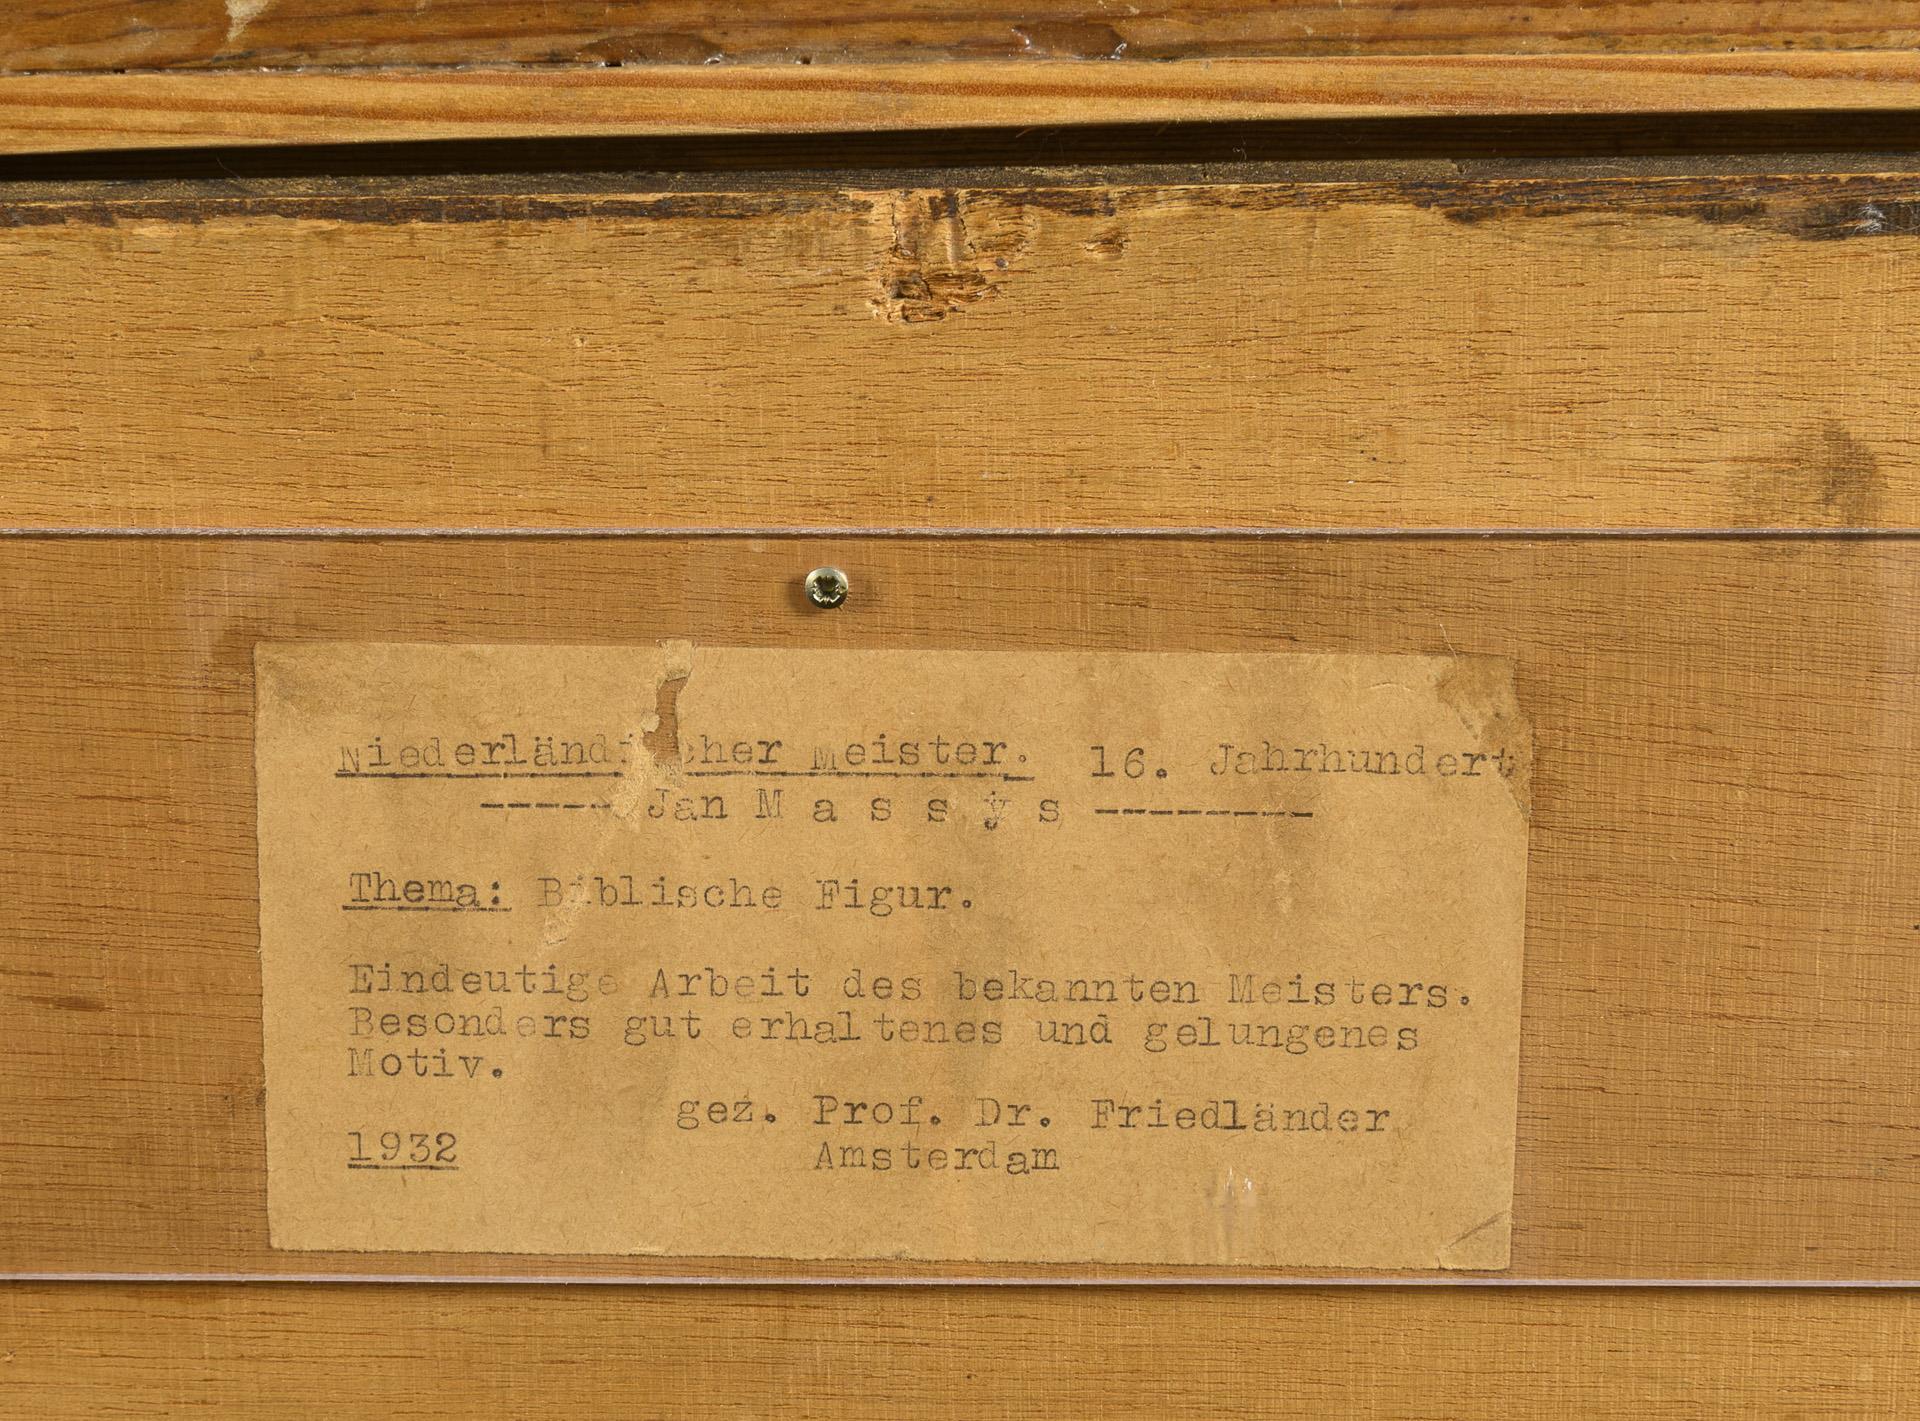 Niederländischer Meister. 16. Jahrhundert
----- Jan M a s s y s ---------
Thema: Biblische Figur.
Eindeutige Arbeit des bekannten Meisters.
Besonders gut erhaltenes und gelungenes
Motiv.
gez. Prof. Dr. Friedländer
1932 Amsterdam